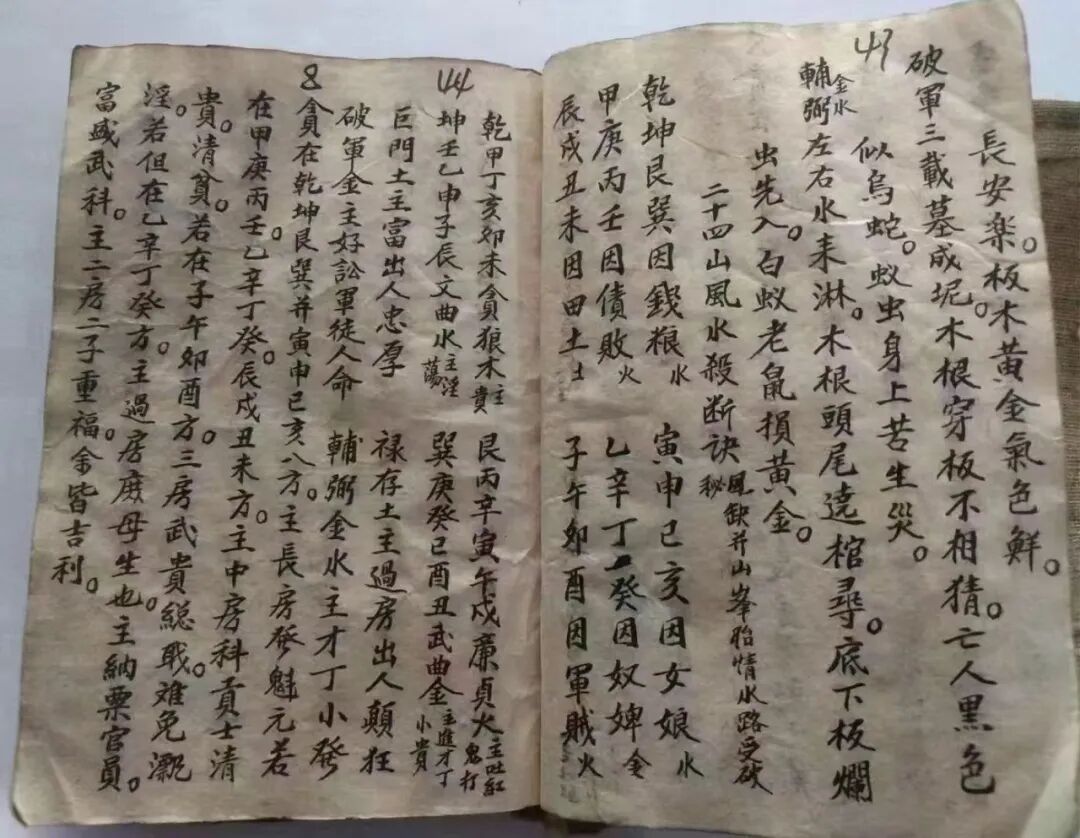 43
長安樂。板木黃金氣色鮮。
破軍三載墓成坭。木根穿板不相猜。亡人黑色
似烏蛇。蚁虫身上苦生災。
輔弼金水左右水来淋。木根頭尾遶棺尋。底下板爛
虫先入。白蚁老鼠損黃金。
二十四山風水殺断訣秘 風缺并山峯胎情水路受破
乾坤艮巽因錢粮水 寅申巳亥因女娘水
甲庚丙壬因債敗火 乙辛丁癸因奴婢金
辰戌丑未因田土土 子午卯酉因軍賊火
44
乾甲丁亥卯未貪狼木主貴 艮丙辛寅午戌廉貞火主吐紅鬼打
坤壬乙申子辰文曲水主淫蕩 巽庚癸巳酉丑武曲金主進才丁小貴
巨門土主富出人忠厚 禄存土主過房出人顛狂
破軍金主好訟軍徒人命 輔弼金水主才丁小發
8
貪在乾坤艮巽并寅申巳亥八方。主長房發魁元若
在甲庚丙壬乙辛丁癸。辰戌丑未方。主中房科貢士清
貴。清貧。若在子午卯酉方。三房武貴総戰。难免飄
淫。若但在乙辛丁癸方。主過房庶母生也。主納票官員。
富盛武科。主二房二子重福。余皆吉利。